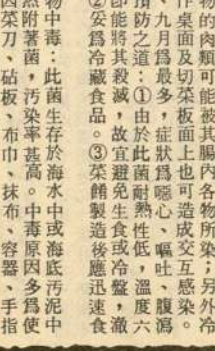 物的肉類可能被其腸內各物所染；另外冷
作桌面及切菜板面上也可造成交互感染。
、九月爲最多，症狀爲噁心、嘔吐、腹瀉
預防之道：①由於此菌耐熱性低，溫度六
卽能將其殺滅，故宜避免生食或冷盤，澈
②妥爲冷藏食品。③菜餚製造後應迅速食
物中毒：此菌生存於海水中或海底汚泥中
然附著菌，汚染率甚高。中毒原因多爲使
因菜刀、砧板、布巾、抹布、容器、手指